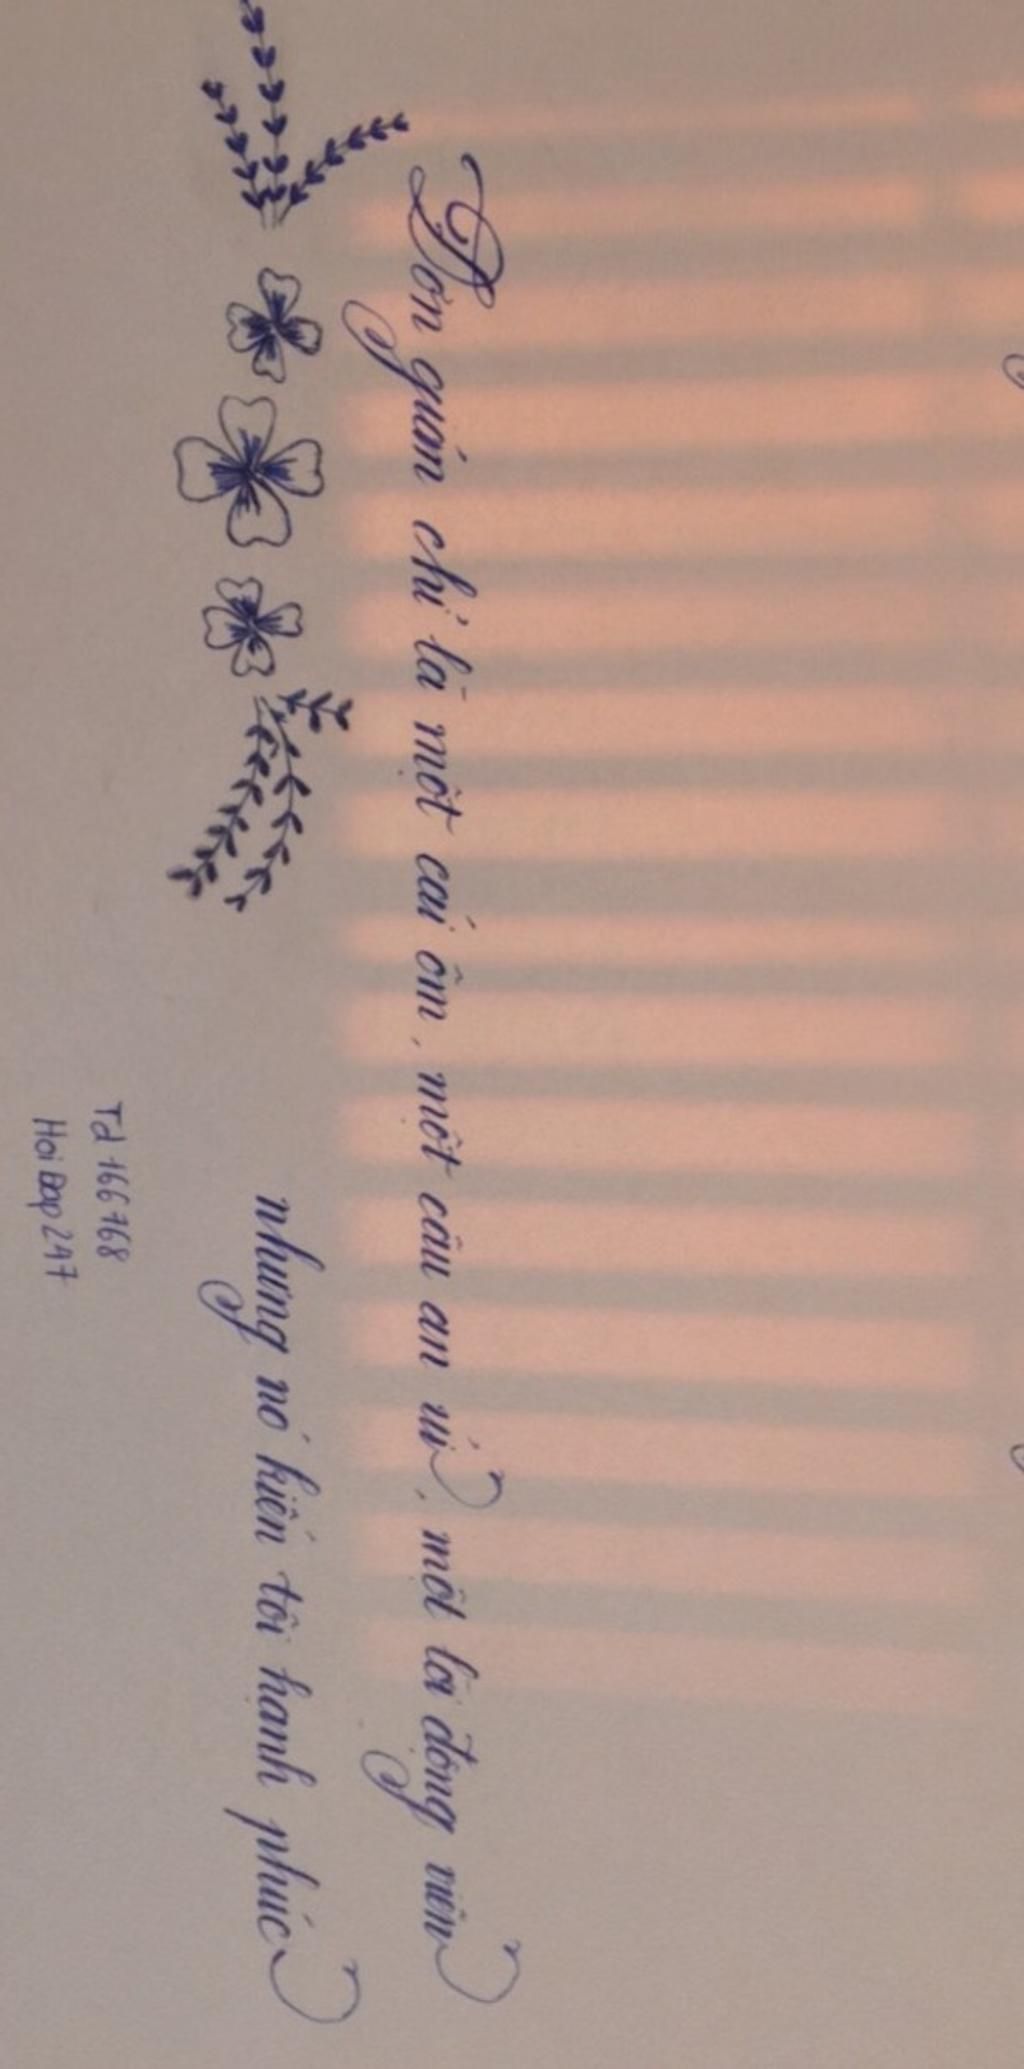 Đơn giản chỉ là một cái ôm, một câu an ủi, một lời động viên
nhưng nó khiến tôi hạnh phúc
Td166768
HoiDap247